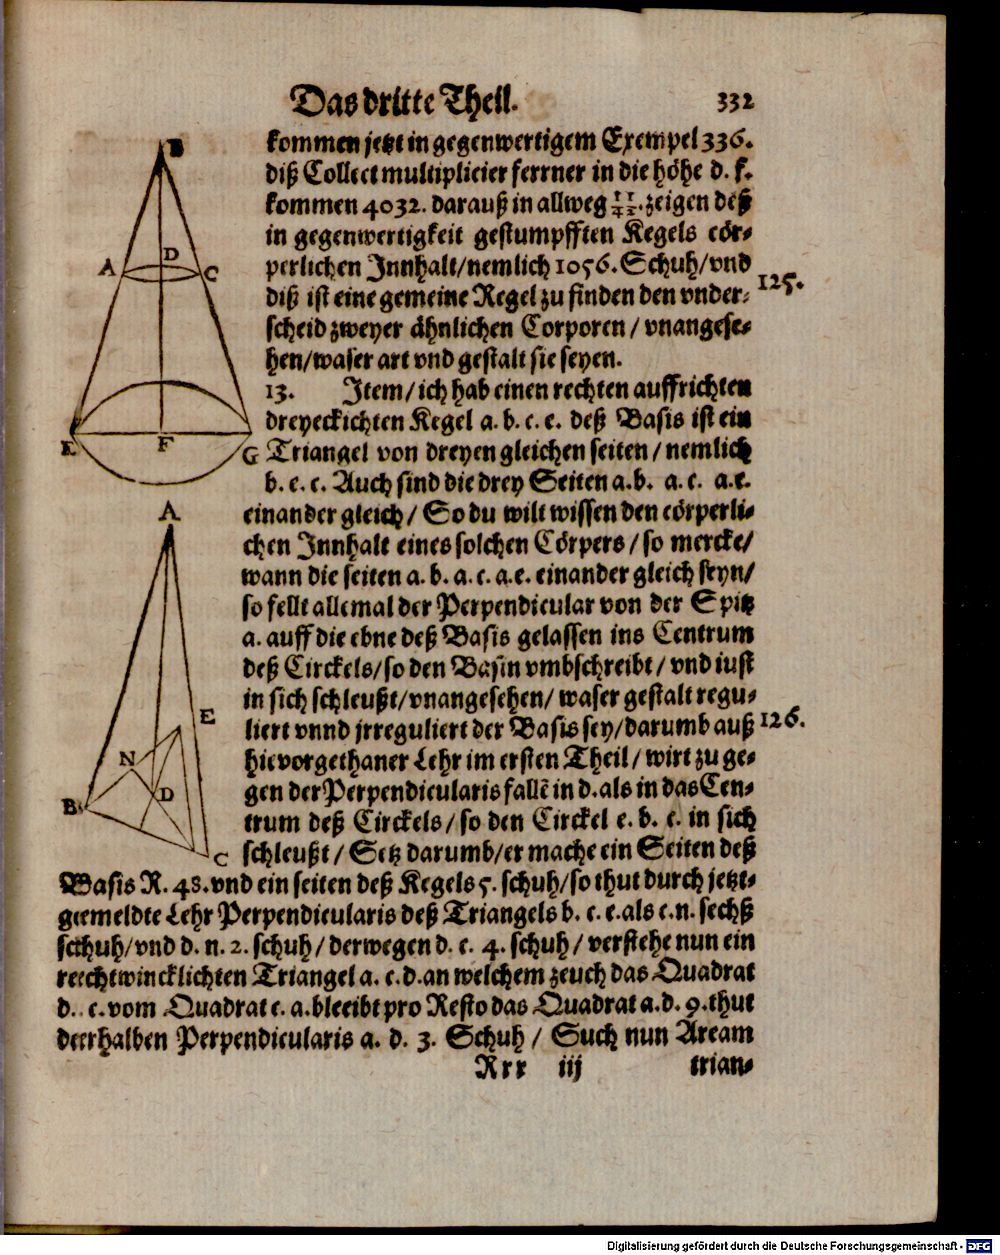 Das dritte Theil. 332
kommen jetzt in gegenwertigem Exempel 336.
diß Collect multiplicier ferrner in die höhe d. f.
kommen 4032. darauß in allweg 11/42. zeigen deß
in gegenwertigkeit gestumpfften Kegels cör-
perlichen Innhalt/nemlich 1056. Schuh/vnd
125.
diß ist eine gemeine Regel zu finden den vnder-
scheid zweyer ähnlichen Corporen / vnangese-
hen/waser art vnd gestalt sie seyen.
13. Item/ich hab einen rechten auffrichten
dreyeckichten Kegel a. b. c. e. deß Basis ist ein
Triangel von dreyen gleichen seiten / nemlich
b. e. c. Auch sind die drey Seiten a.b. a.c. a.e.
einander gleich / So du wilt wissen den cörperli-
chen Innhalt eines solchen Cörpers / so mercke/
wann die seiten a. b. a. c. a.e. einander gleich seyn/
so fellt allemal der Perpendicular von der Spitz
a. auff die ebne deß Basis gelassen ins Centrum
deß Circkels/so den Basin vmbschreibt/ vnd iust
in sich schleußt/vnangesehen/ waser gestalt regu-
liert vnnd jrreguliert der Basis sey/darumb auß
126.
hievorgethaner Lehr im ersten Theil/ wirt zu ge-
gen der Perpendicularis fallẽ in d. als in das Cen-
trum deß Circkels/so den Circkel e. b. c. in sich
schleußt/ Setz darumb/er mache ein Seiten deß
Basis R. 48. vnd ein seiten deß Kegels 5. schuh/so thut durch jetzt-
geemeldte Lehr Perpendicularis deß Triangels b. c. e. als c.n. sechß
scthuh/vnd d. n. 2. schuh/ derwegen d. c. 4. schuh/ verstehe nun ein
reechtwincklichten Triangel a. c. d. an welchem zeuch das Quadrat
d. c. vom Quadrat c. a. bleeibt pro Resto das Quadrat a.d. 9. thut
deerhalben Perpendicularis a. d. 3. Schuh / Such nun Aream
Rrr iij trian-
B
D
A
C
E
F
G
A
E
N
B
D
C
Digitalisierung gefördert durch die Deutsche Forschungsgemeinschaft - DFG